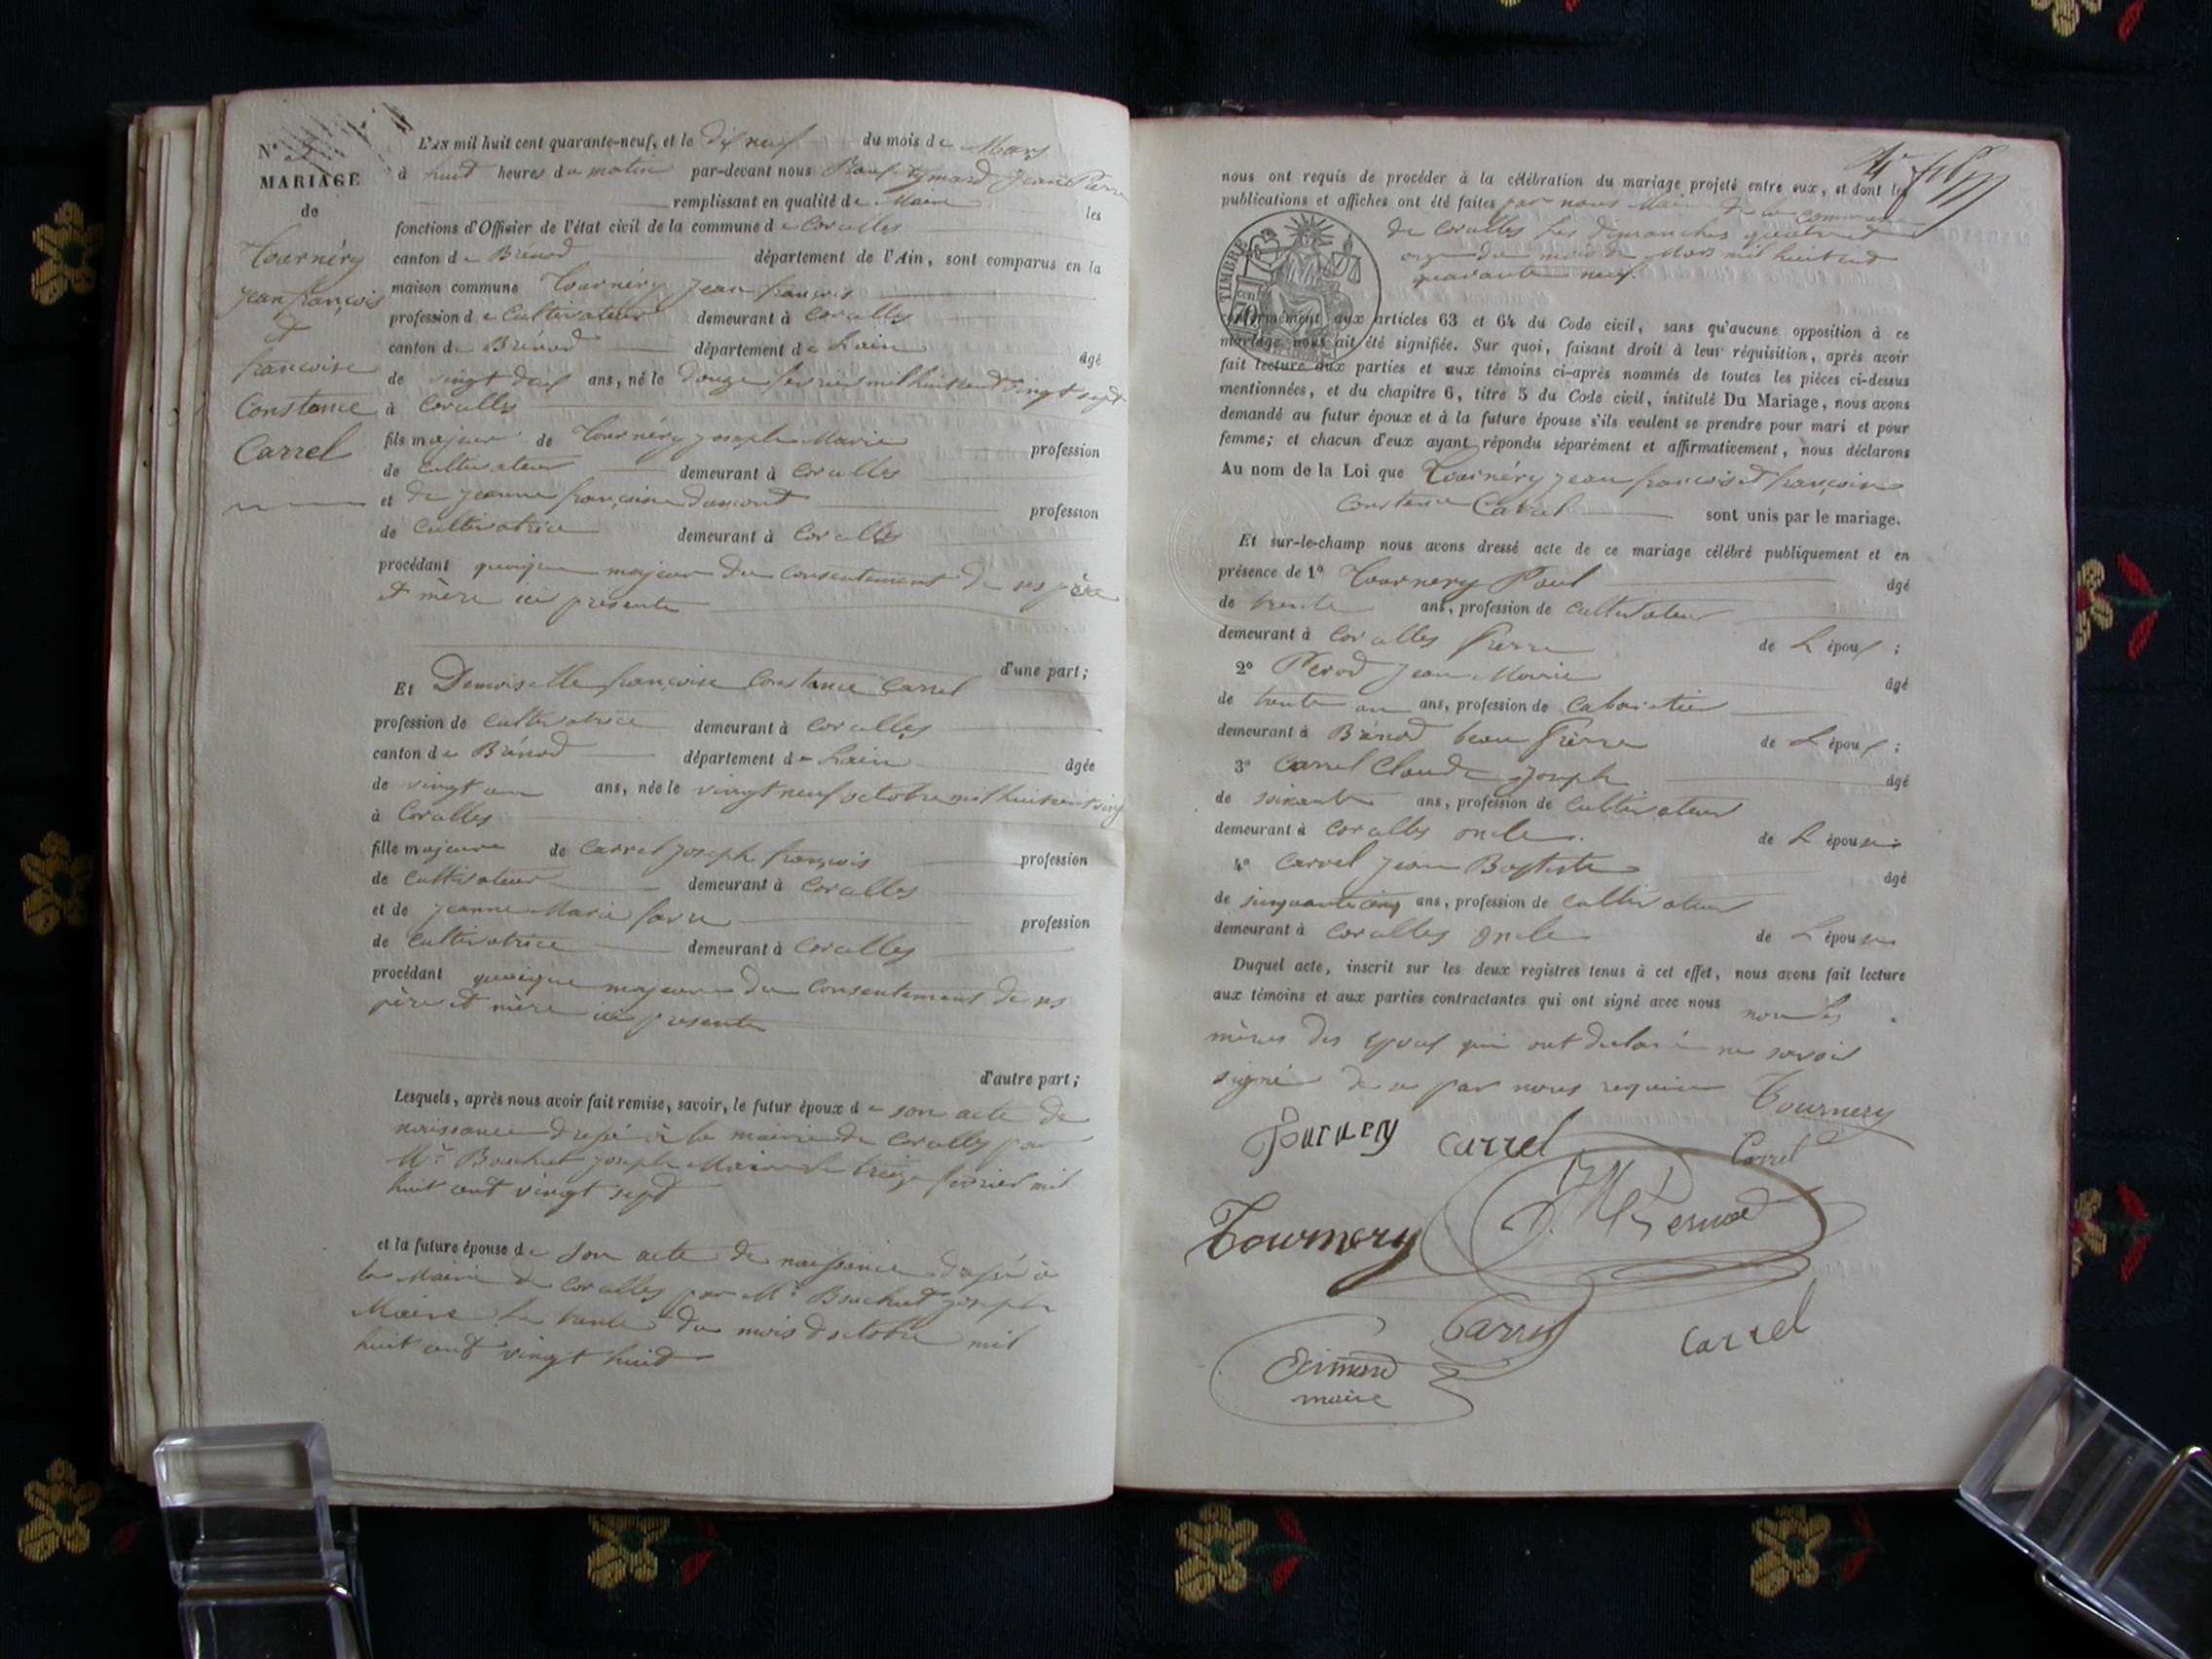 N° 2
MARIAGE
de
Tournéry
Jean françois
et
françoise
Constance
Carrel
L'AN mil huit cent quarante-neuf, et le dix neuf du mois de Mars
à huit heures du matin par-devant nous Jean Pierre
remplissant en qualité de Maire les
fonctions d'Officier de l'état civil de la commune de Corcelles
canton de Brénod département de l'Ain, sont comparus en la
maison commune Tournéry Jean françois
profession de Cultivateur demeurant à Corcelles
canton de Brénod département de Lain âgé
de vingt deux ans, né le douze fevrier mil huit cent vingt sept
à Corcelles
fils majeur de Tournéry Joseph Marie profession
de cultivateur demeurant à Corcelles
et de Jeanne françoise Dumont profession
de Cultivatrice demeurant à Corcelles
procédant quoique majeur du consentement de ses père
et mère ici présents
d'une part;
Et Demoiselle françoise Constance Carrel
profession de cultivatrice demeurant à Corcelles
canton de Brénod département de Lain âgée
de vingt un ans, née le vingt neuf octobre mil huit cent vingt
à Corcelles
fille majeure de Carrel Joseph françois profession
de Cultivateur demeurant à Corcelles
et de Jeanne Marie favre profession
de Cultivatrice demeurant à Corcelles
procédant quoique majeure du Consentement de ses
père et mère ici présents
d'autre part;
Lesquels, après nous avoir fait remise, savoir, le futur époux de son acte de
naissance dressé à la mairie de Corcelles par
Mr Bouchut Joseph Maire le treize février mil
huit cent vingt sept
et la future épouse de son acte de naissance dressé à
la Mairie de Corcelles par Mr Bouchut Joseph
Maire le trente du mois d'octobre mil
huit cent vingt huit
nous ont requis de procéder à la célébration du mariage projeté entre eux, et dont les
publications et affiches ont été faites par nous Maire de la commune
de Corcelles les dimanches quatre et
onze du mois de Mars mil huit cent
quarante neuf.
TIMBRE
70
conformément aux articles 63 et 64 du Code civil, sans qu'aucune opposition à ce
mariage nous ait été signifiée. Sur quoi, faisant droit à leur réquisition, après avoir
fait lecture aux parties et aux témoins ci-après nommés de toutes les pièces ci-dessus
mentionnées, et du chapitre 6, titre 5 du Code civil, intitulé Du Mariage, nous avons
demandé au futur époux et à la future épouse s'ils veulent se prendre pour mari et pour
femme; et chacun d'eux ayant répondu séparément et affirmativement, nous déclarons
Au nom de la Loi que Tournéry Jean francois et françoise
Constance Carrel sont unis par le mariage.
Et sur-le-champ nous avons dressé acte de ce mariage célébré publiquement et en
présence de 1° Tournery Paul âgé
de trente ans, profession de cultivateur
demeurant à Corcelles frère de L époux;
2° Pernod Jean Marie âgé
de trente un ans, profession de Cabaretier
demeurant à Brénod beau frère de L époux;
3° Carrel Claude Joseph âgé
de soixante ans, profession de Cultivateur
demeurant à Corcelles oncle. de L épouse;
4° Carrel Jean Baptiste âgé
de sinquante cinq ans, profession de cultivateur
demeurant à Corcelles oncle de L épouse
Duquel acte, inscrit sur les deux registres tenus à cet effet, nous avons fait lecture
aux témoins et aux parties contractantes qui ont signé avec nous non les
mères des époux qui ont declaré ne savoir
signé de ce par nous requise Tournery
Tournery Carrel Carrel
Tournery J. M. Pernod
Carrel Carrel
Aimard
maire